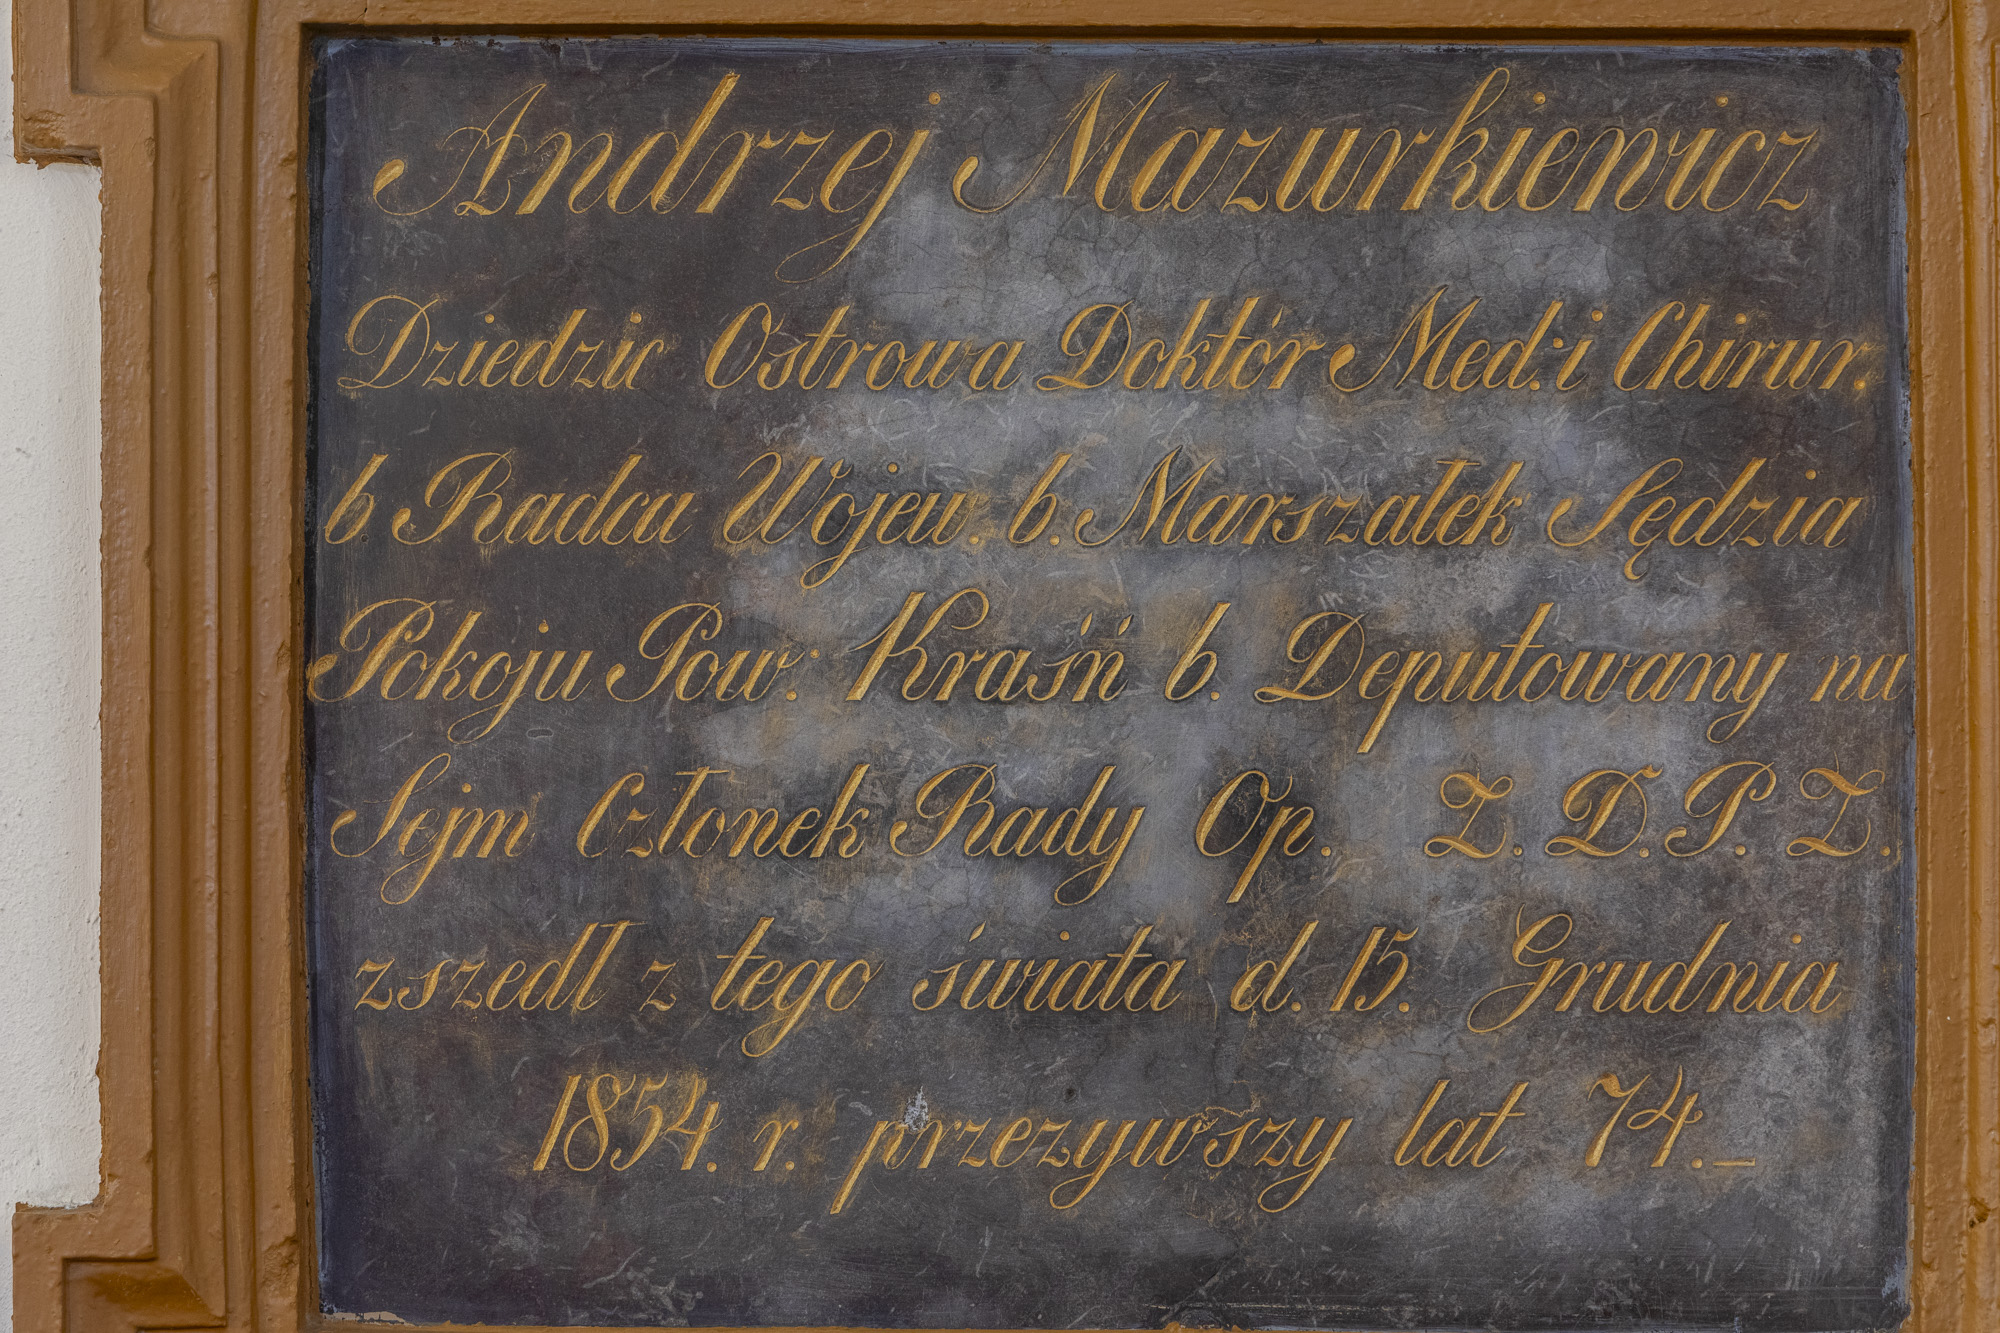 Andrzej Mazurkiewicz
Dziedzic Ostrowa Doktór Med: i Chirur.
b Radca Wojew. b. Marszałek Sędzia
Pokoju Pow: Kraśń b. Deputowany na
Sejm Członek Rady Op. Z. D. P. Z.
zszedł z tego świata d. 15. Grudnia
1854. r. przezywszy lat 74._